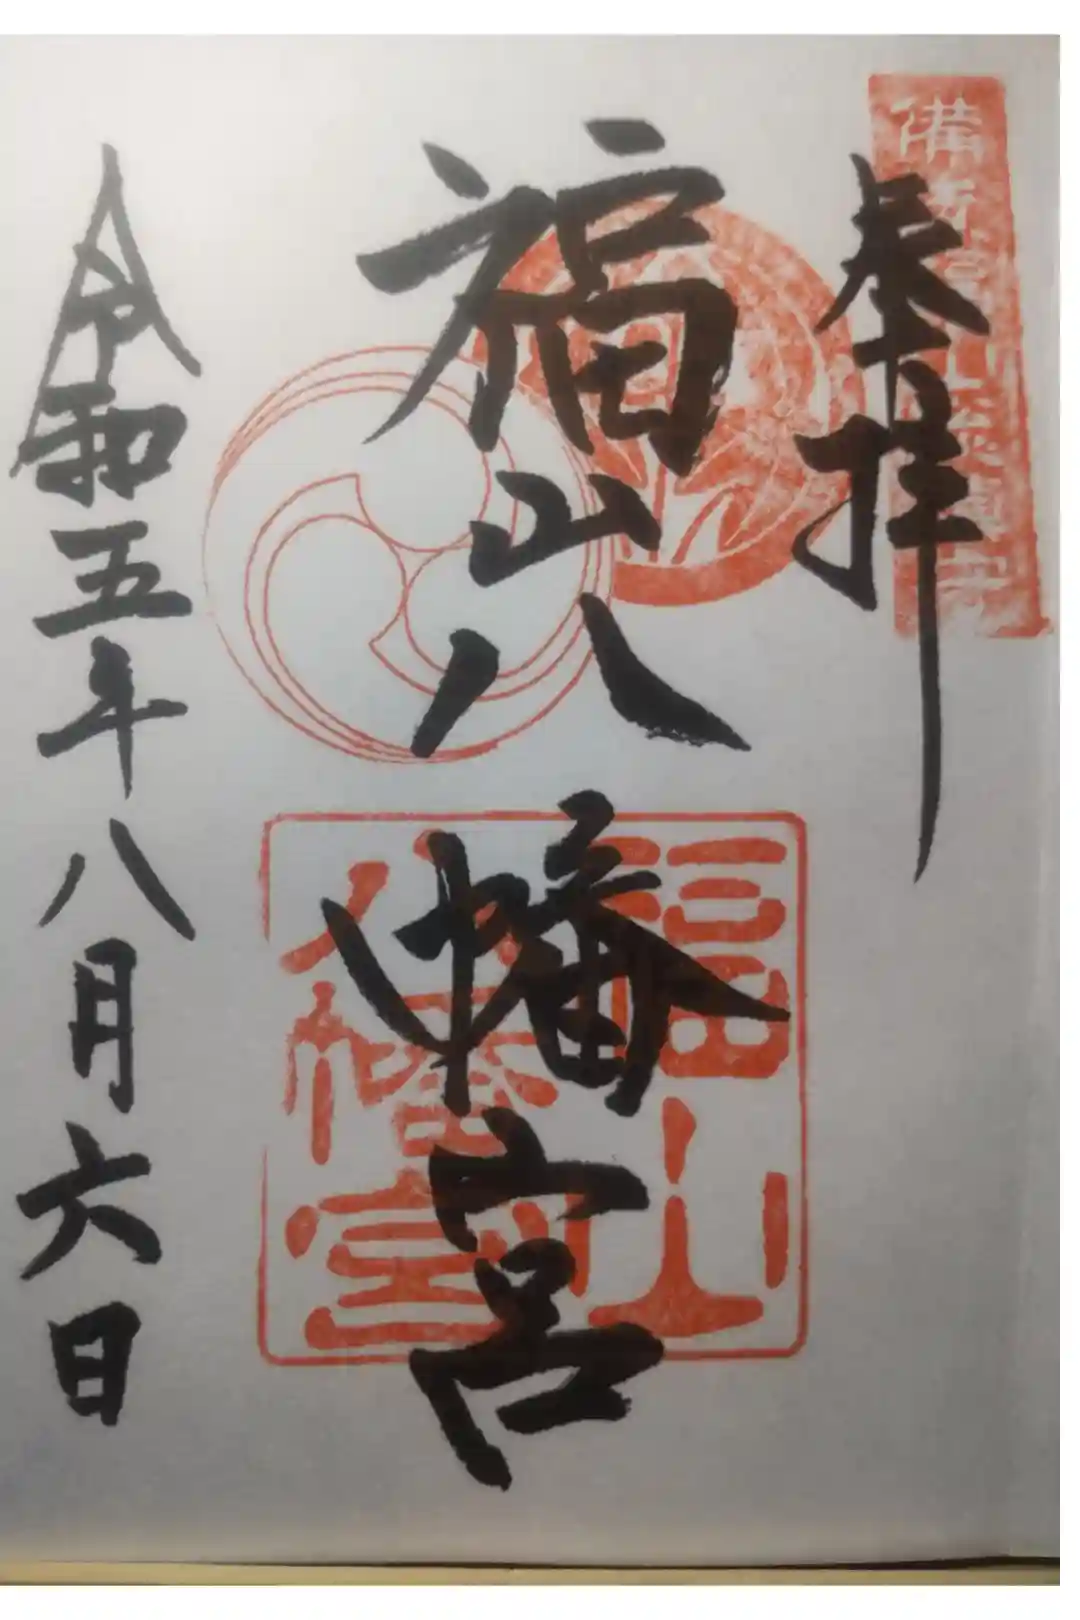 奉拝
福山八幡宮
福山
八幡宮
令和五年八月六日